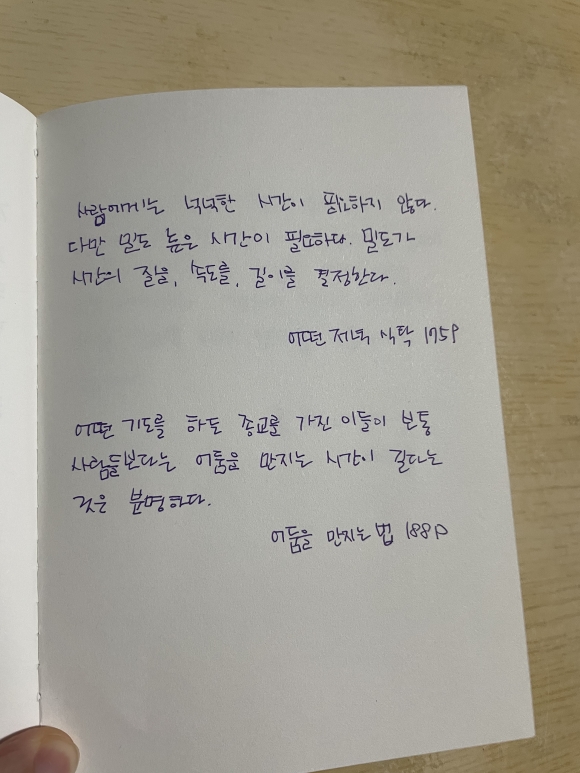 사람에게는 넉넉한 시간이 필요하지 않다.
다만 밀도 높은 시간이 필요하다. 밀도가
시간의 질을, 속도를, 길이를 결정한다.
어떤 저녁 식탁 175p
어떤 기도를 하든 종교를 가진 이들이 보통
사람들보다는 어둠을 만지는 시간이 길다는
것은 분명하다.
어둠을 만지는 법 188p